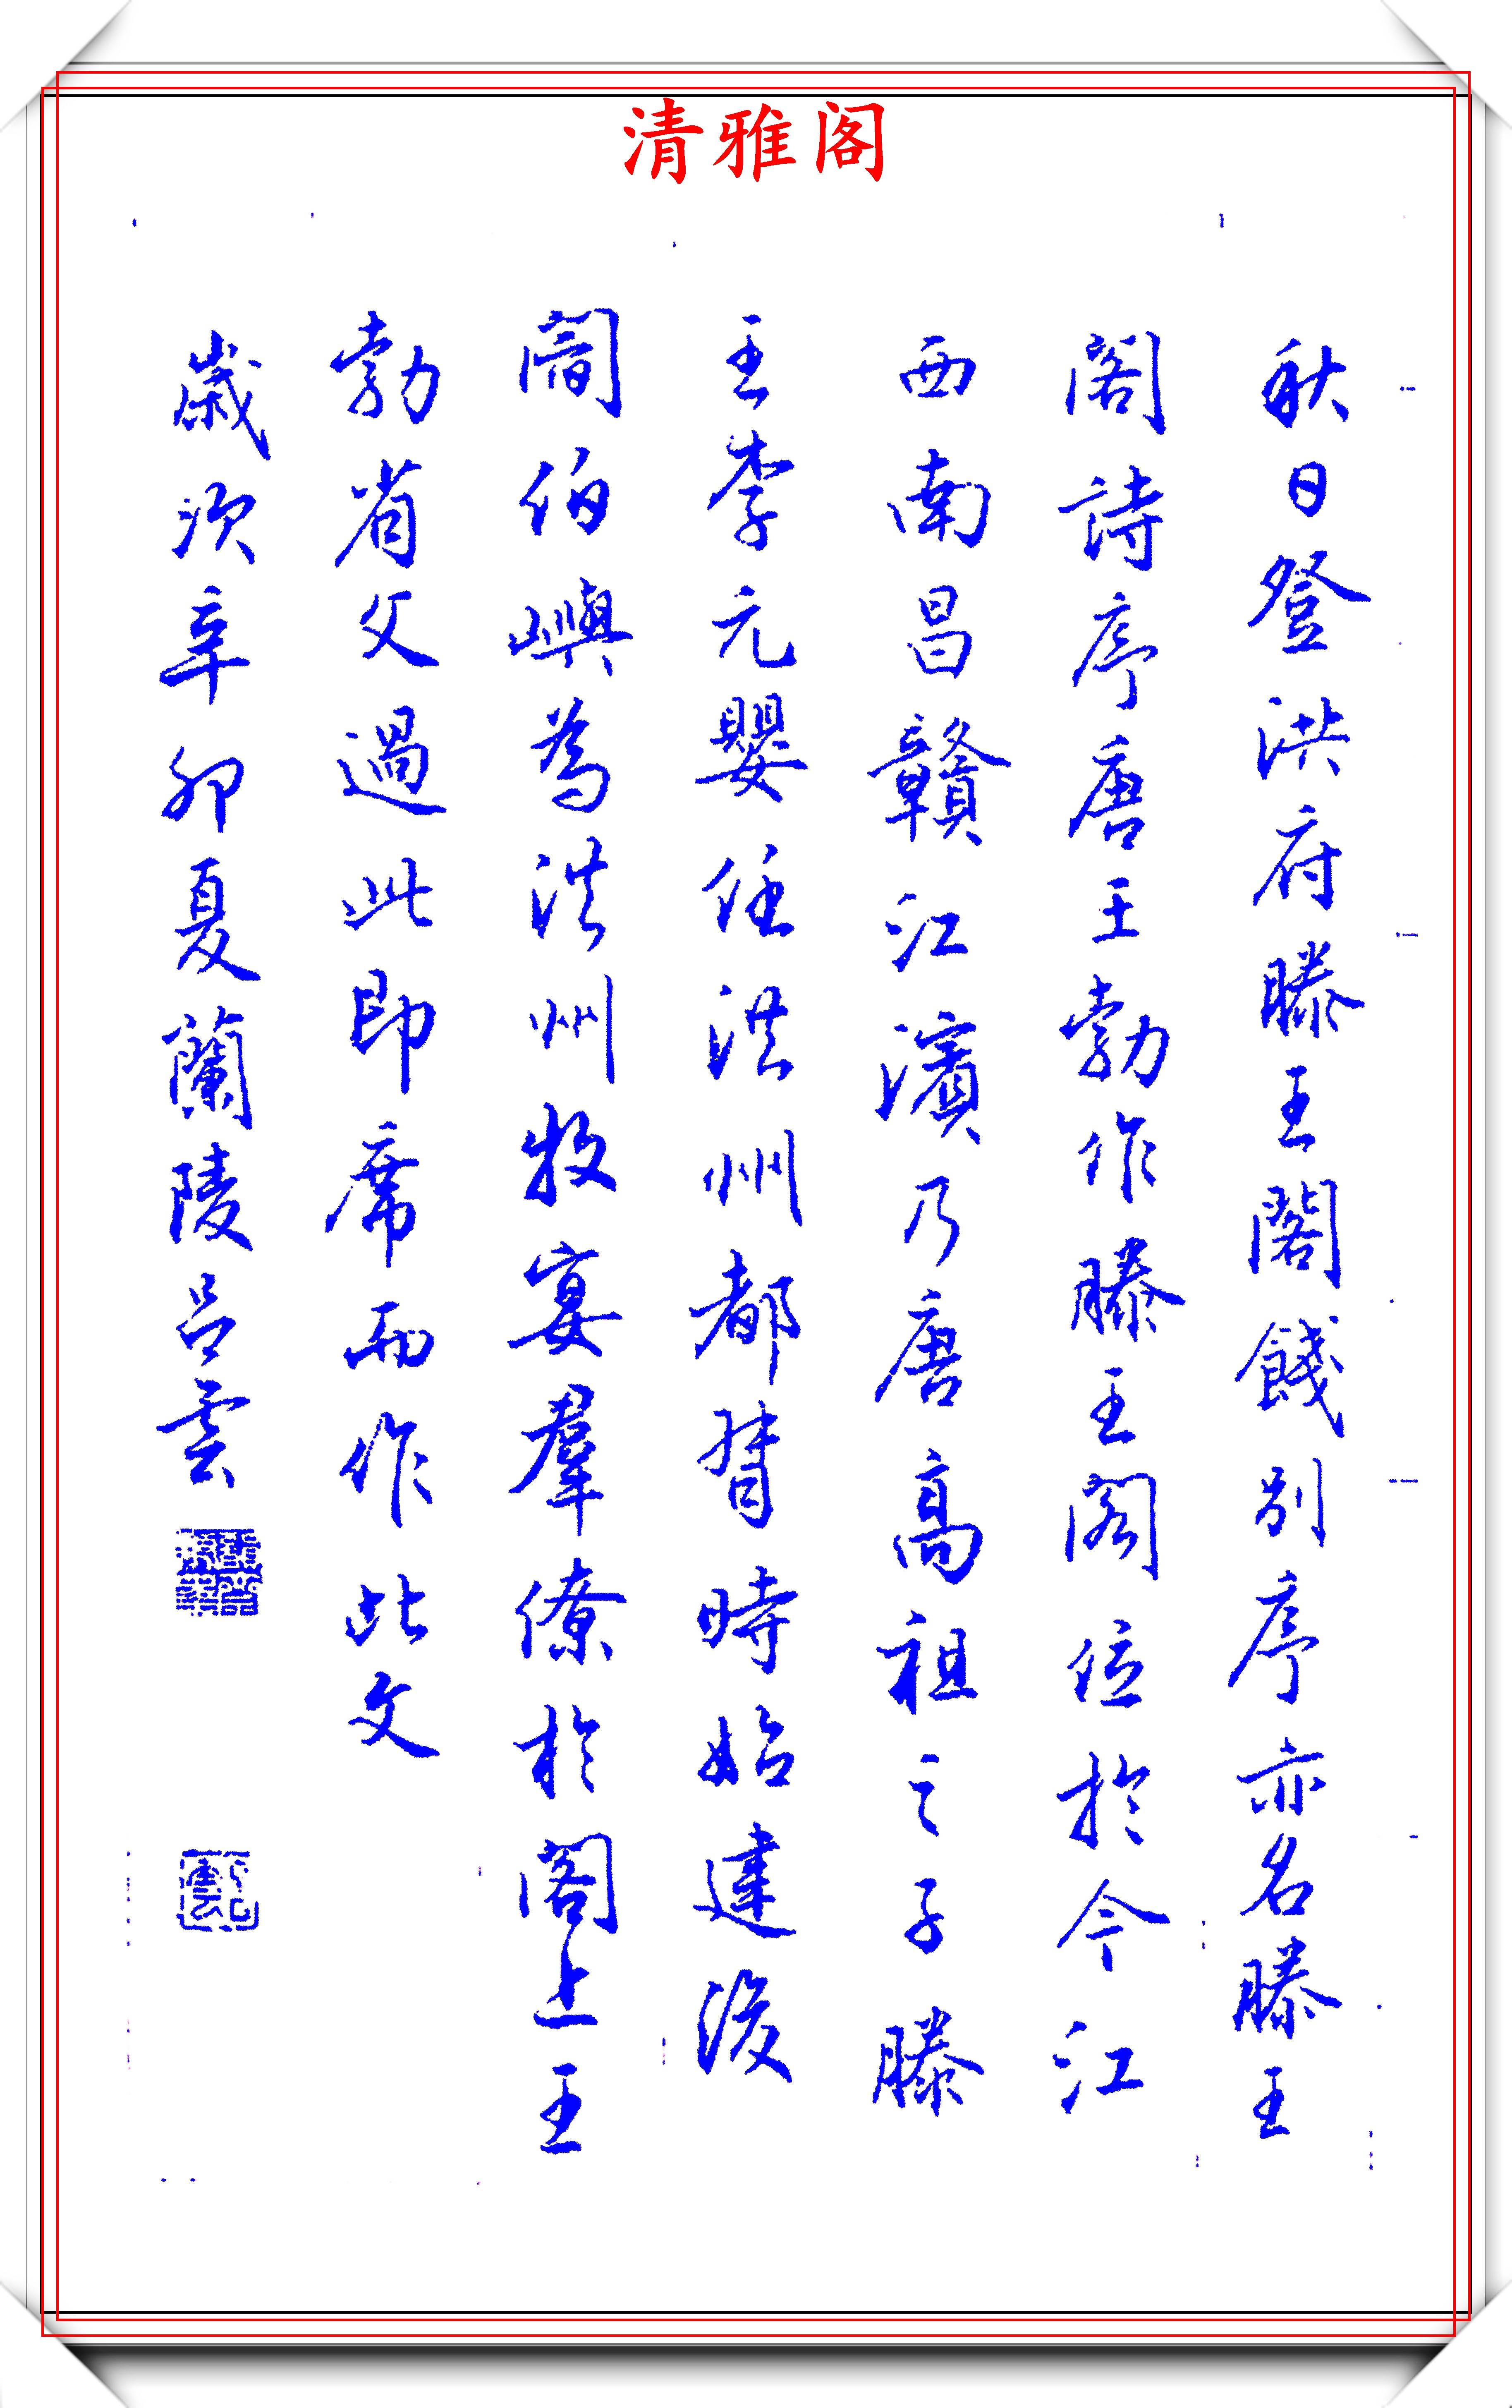 清雅阁
秋日登洪府滕王閣餞別序亦名滕王
閣詩序唐王勃作滕王閣位於今江
西南昌贛江濱乃唐高祖之子滕
王李元嬰任洪州都督時始建後
閻伯嶼為洪州牧宴羣僚於閣上王
勃省父過此即席而作此文
歲次辛卯夏蘭陵呂雲